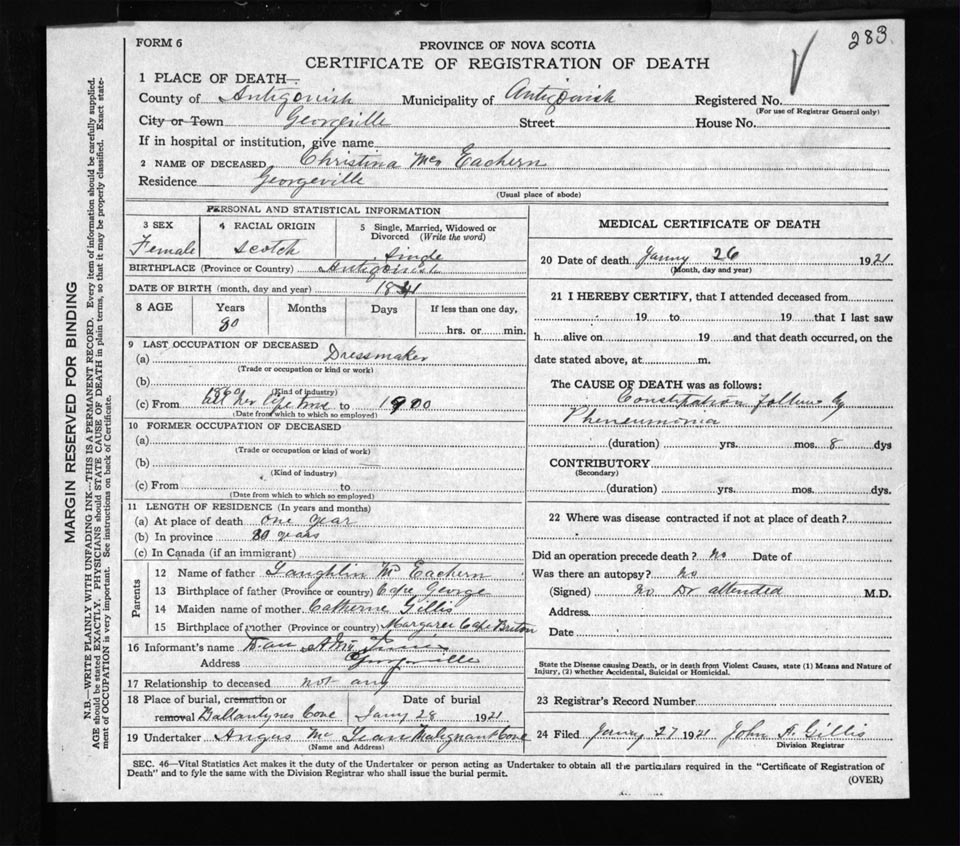 283
FORM 6
PROVINCE OF NOVA SCOTIA
CERTIFICATE OF REGISTRATION OF DEATH
1 PLACE OF DEATH—
County of Antigonish Municipality of Antigonish Registered No.
(For use of Registrar General only)
City or Town Georgeville Street House No.
If in hospital or institution, give name
2 NAME OF DECEASED Christina Mc Eachern
Residence Georgeville
(Usual place of abode)
PERSONAL AND STATISTICAL INFORMATION
3 SEX Female
4 RACIAL ORIGIN Scotch
5 Single, Married, Widowed or Divorced (Write the word) Single
BIRTHPLACE (Province or Country) Antigonish
DATE OF BIRTH (month, day and year) 1841
8 AGE Years Months Days If less than one day,
80 hrs. or min.
9 LAST OCCUPATION OF DECEASED
(a) Dressmaker
(Trade or occupation or kind or work)
(b)
(Kind of industry)
(c) From all her life time to 1900
(Date from which to which so employed)
10 FORMER OCCUPATION OF DECEASED
(a)
(Trade or occupation or kind of work)
(b)
(Kind of industry)
(c) From to
(Date from which to which so employed)
11 LENGTH OF RESIDENCE (In years and months)
(a) At place of death one year
(b) In province 80 years
(c) In Canada (if an immigrant)
Parents
12 Name of father Laughlin Mc Eachern
13 Birthplace of father (Province or country) Cape George
14 Maiden name of mother Catherine Gillis
15 Birthplace of mother (Province or country) Margaree Cape Briton
16 Informant's name Dan A Mc
Address Georgeville
17 Relationship to deceased not any
18 Place of burial, cremation or removal Ballantynes Cove
Date of burial Jany 28 1921
19 Undertaker Angus Mc Lean Malignant Cove
(Name and Address)
MEDICAL CERTIFICATE OF DEATH
20 Date of death Janny 26 1921
(Month, day and year)
21 I HEREBY CERTIFY, that I attended deceased from
19 to 19 that I last saw
h alive on 19 and that death occurred, on the
date stated above, at m.
The CAUSE OF DEATH was as follows:
Constipation follow by
Pheneumonia
(duration) yrs. mos. 8 dys
CONTRIBUTORY
(Secondary)
(duration) yrs. mos. dys.
22 Where was disease contracted if not at place of death?
Did an operation precede death? No Date of
Was there an autopsy? No
(Signed) No Dr attended M.D.
Address
Date
State the Disease causing Death, or in death from Violent Causes, state (1) Means and Nature of
Injury, (2) whether Accidental, Suicidal or Homicidal.
23 Registrar's Record Number
24 Filed Janny 27 1921 John A. Gillis
Division Registrar
SEC. 46—Vital Statistics Act makes it the duty of the Undertaker or person acting as Undertaker to obtain all the particulars required in the "Certificate of Registration of
Death" and to fyle the same with the Division Registrar who shall issue the burial permit.
(OVER)
MARGIN RESERVED FOR BINDING
N.B.—WRITE PLAINLY WITH UNFADING INK—THIS IS A PERMANENT RECORD. Every item of information should be carefully supplied.
AGE should be stated EXACTLY. PHYSICIANS should STATE CAUSE OF DEATH in plain terms, so that it may be properly classified. Exact state-
ment of OCCUPATION is very important. See instructions on back of Certificate.